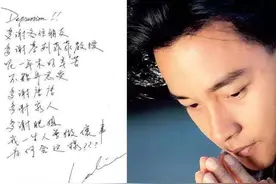 Depression!!
多謝各位朋友
多謝麥列菲菲教授
呢一年來好辛苦
不能再忍受
多謝唐唐
多謝家人
多謝肥姐
我一生人無做壞事
為何會這樣???
Leslie